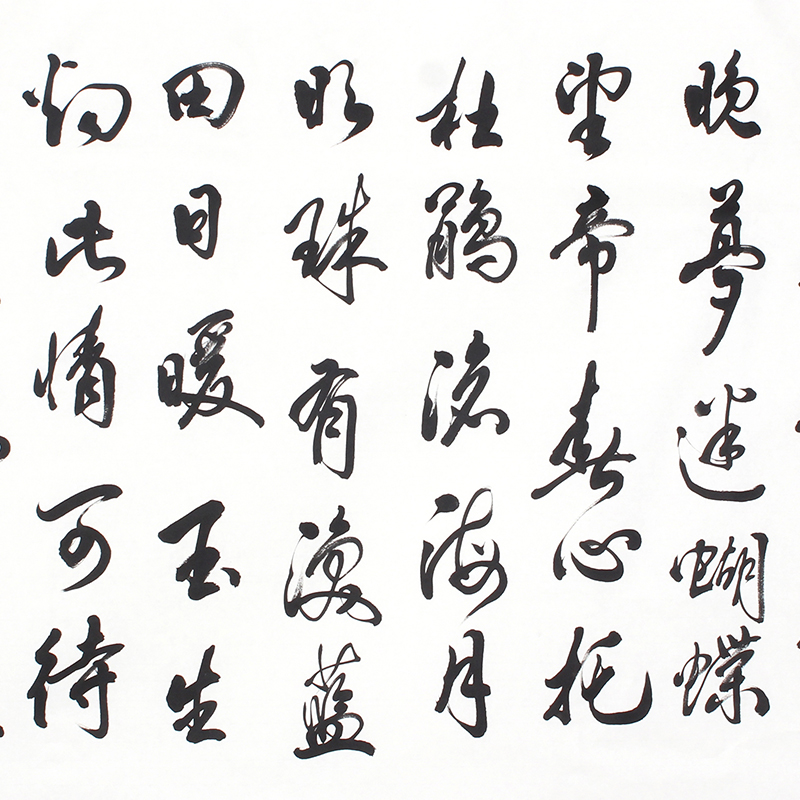 晓夢迷蝴蝶
望帝春心托
杜鵑滄海月
明珠有淚藍
田日暖玉生
烟此情可待